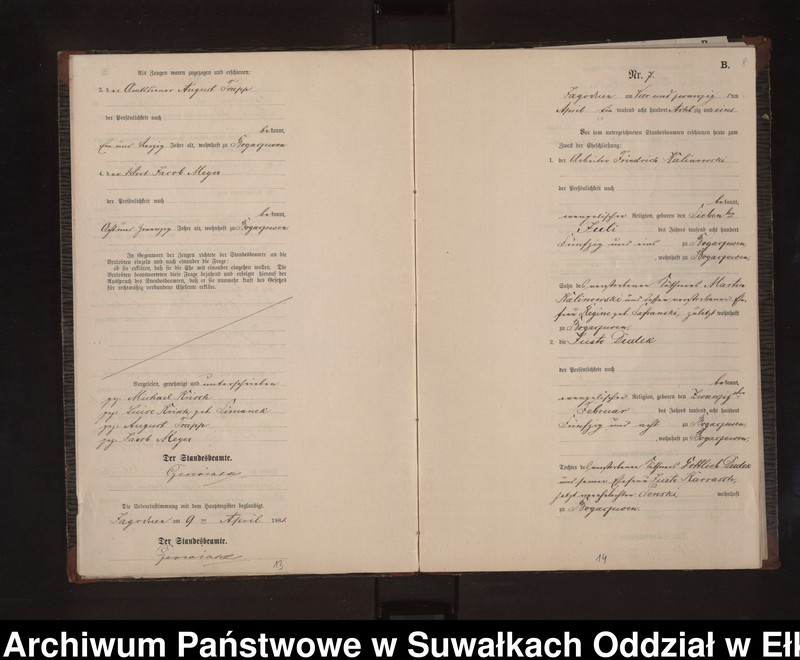 Als Zeugen waren zugezogen und erschienen:
3. der Amtsdiener August Trapp
der Persönlichkeit nach
bekannt,
Ein und vierzig Jahre alt, wohnhaft zu Bogaczewen
4. der Wirt Jacob Meyer
der Persönlichkeit nach
bekannt,
Acht und zwanzig Jahre alt, wohnhaft zu Bogaczewen
In Gegenwart der Zeugen richtete der Standesbeamte an die
Verlobten einzeln und nach einander die Frage:
ob sie erklären, daß sie die Ehe mit einander eingehen wollen. Die
Verlobten beantworteten diese Frage bejahend und erfolgte hierauf der
Ausspruch des Standesbeamten, daß er sie nunmehr kraft des Gesetzes
für rechtmäßig verbundene Eheleute erkläre.
Vorgelesen, genehmigt und unterschrieben
gez. Michael
gez. Luise geb. Simanek
gez. August Trapp
gez. Jacob Meyer
Der Standesbeamte.
Die Uebereinstimmung mit dem Hauptregister beglaubigt.
Jagodnen am 9 ten April 1881
Der Standesbeamte.
13
B.
8
Nr. 7.
Jagodnen am Vier und zwanzig ten
April Ein tausend acht hundert Achtzig und eins
Vor dem unterzeichneten Standesbeamten erschienen heute zum
Zweck der Eheschließung:
1. der Arbeiter Friedrich Kalinowski
der Persönlichkeit nach
bekannt,
evangelischer Religion, geboren den Sieben ten
Juli des Jahres tausend acht hundert
Fünfzig und eins zu Bogaczewen
, wohnhaft zu Bogaczewen
Sohn des verstorbenen Martin
Kalinowski und dessen verstorbener Ehe
frau Regine geb. Safranski, zuletzt wohnhaft
zu Bogaczewen
2. die Juste Dudek
der Persönlichkeit nach
bekannt,
evangelischer Religion, geboren den Zwanzig sten
Februar des Jahres tausend acht hundert
Fünfzig und acht zu Bogaczewen
, wohnhaft zu Bogaczewen
Tochter des verstorbenen Gottlieb Dudek
und seiner Ehefrau Juste
jetzt verehelichten wohnhaft
zu Bogaczewen.
14
Archiwum Państwowe w Suwałkach Oddział w Ełk